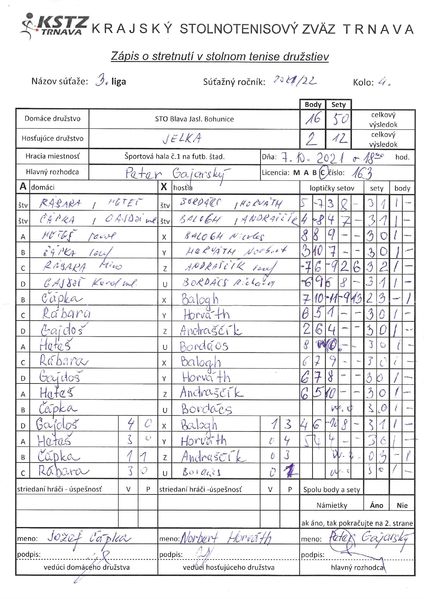 KSTZ TRNAVA KRAJSKÝ STOLNOTENISOVÝ ZVÄZ TRNAVA
Zápis o stretnutí v stolnom tenise družstiev
Názov súťaže: 3. liga Súťažný ročník: 2021/22 Kolo: 4.
Body Sety
Domáce družstvo STO Blava Jasl. Bohunice 16 50 celkový výsledok
Hosťujúce družstvo JELKA 2 12 celkový výsledok
Hracia miestnosť Športová hala č.1 na futb. štad. Dňa: 7.10.2021 o 18 hod.
Hlavný rozhodca Peter Gajarský Licencia: M A B C číslo: 163
A domáci X hostia loptičky setov sety body
štv RÁBARA, HETEŠ štv BORDÁCS, HORVÁTH 5 -7 3 8 - 3 1 1 -
štv ČÁPKA, štv BALOGH, ANDRAŠČÍK 4 -8 4 7 - 3 1 1 -
A HETEŠ X BALOGH 8 8 9 - - 3 0 1 -
B ČÁPKA Y HORVÁTH Norbert 3 10 7 - - 3 0 1 -
C RÁBARA Miro Z ANDRAŠČÍK -7 6 -9 2 6 3 2 1 -
D U BORDÁCS -6 9 6 8 - 3 1 1 -
B Čápka X Balogh 7 10 -11 -9 -13 2 3 - 1
C Rábara Y Horváth 6 5 1 - - 3 0 1 -
D Gajdoš Z Andraščík 2 6 4 - - 3 0 1 -
A Heteš U Bordács 3 0 1 -
C Rábara X Balogh 6 7 9 - - 3 0 1 -
D Gajdoš Y Horváth 6 7 8 - - 3 0 1 -
A Heteš Z Andraščík 6 5 10 - - 3 0 1 -
B Čápka U Bordács 3 0 1 -
D Gajdoš 4 0 X Balogh 1 3 4 6 -10 8 - 3 1 1 -
A Heteš 3 0 Y Horváth 0 4 5 4 - - 3 0 1 -
B Čápka 1 1 Z Andraščík 0 3 - 1
C Rábara 3 0 U Bordács 0 3 0 1 -
striedaní hráči - úspešnosť V P striedaní hráči - úspešnosť V P Spolu body a sety
Námietky Áno Nie
ak áno, tak pokračujte na 2. strane
meno: Jozef Čápka meno: Norbert Horváth meno: Peter Gajarský
podpis: podpis: podpis:
vedúci domáceho družstva vedúci hosťujúceho družstva hlavný rozhodca